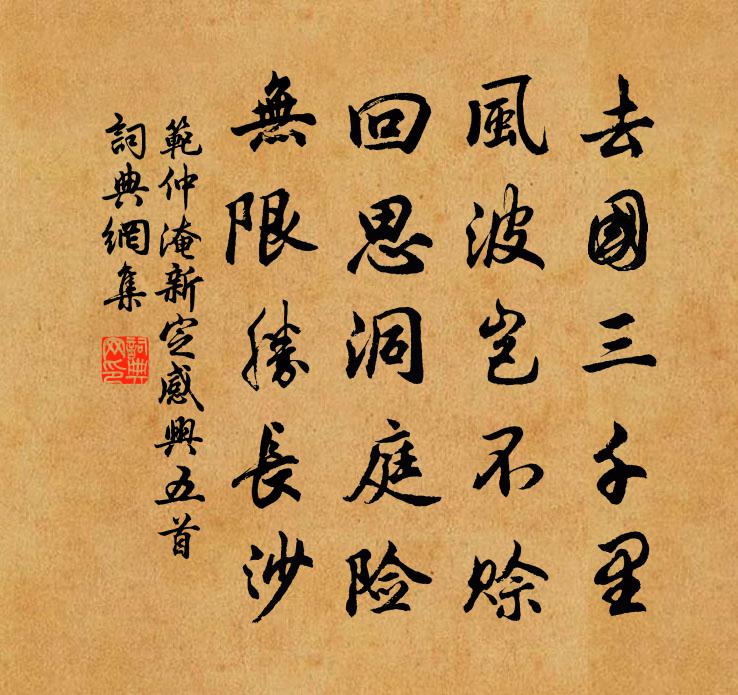 去國三千里
風波豈不賒
回思洞庭险
無限勝長沙
範仲淹新定感興五首
詞典網集
詞典網印